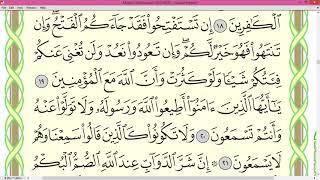 ٱلْكَٰفِرِينَ ١٨ إِن تَسْتَفْتِحُوا۟ فَقَدْ جَآءَكُمُ ٱلْفَتْحُ ۖ وَإِن
تَنتَهُوا۟ فَهُوَ خَيْرٌ لَّكُمْ ۖ وَإِن تَعُودُوا۟ نَعُدْ وَلَن تُغْنِىَ عَنكُمْ
فِئَتُكُمْ شَيْـًٔا وَلَوْ كَثُرَتْ وَأَنَّ ٱللَّهَ مَعَ ٱلْمُؤْمِنِينَ ١٩
يَٰٓأَيُّهَا ٱلَّذِينَ ءَامَنُوٓا۟ أَطِيعُوا۟ ٱللَّهَ وَرَسُولَهُۥ وَلَا تَوَلَّوْا۟ عَنْهُ
وَأَنتُمْ تَسْمَعُونَ ٢٠ وَلَا تَكُونُوا۟ كَٱلَّذِينَ قَالُوا۟ سَمِعْنَا وَهُمْ
لَا يَسْمَعُونَ ٢١ ۞ إِنَّ شَرَّ ٱلدَّوَآبِّ عِندَ ٱللَّهِ ٱلصُّمُّ ٱلْبُكْمُ